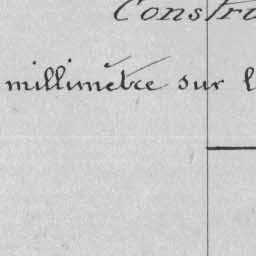 Constru
millimètre sur l